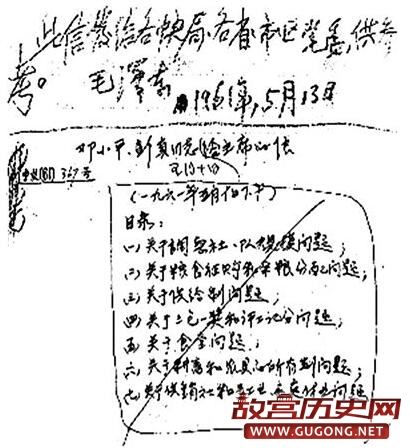 此信发给各中央局,各省市区党委,供参
考。
毛泽东
1961年,5月13日
邓小平、彭真同志给主席的信
五月十日
中发(61) 367号
(一九六一年五月10日下午)
目录:
(一)关于调整社、队规模问题;
(二)关于粮食征购和余粮分配问题;
(三)关于供给制问题;
(四)关于三包一奖和评工记分问题;
(五)关于食堂问题;
(六)关于耕畜和农具的所有制问题;
(七)关于供销社和手工业
问题
故宫历史网
WWW.GUGONG.NET